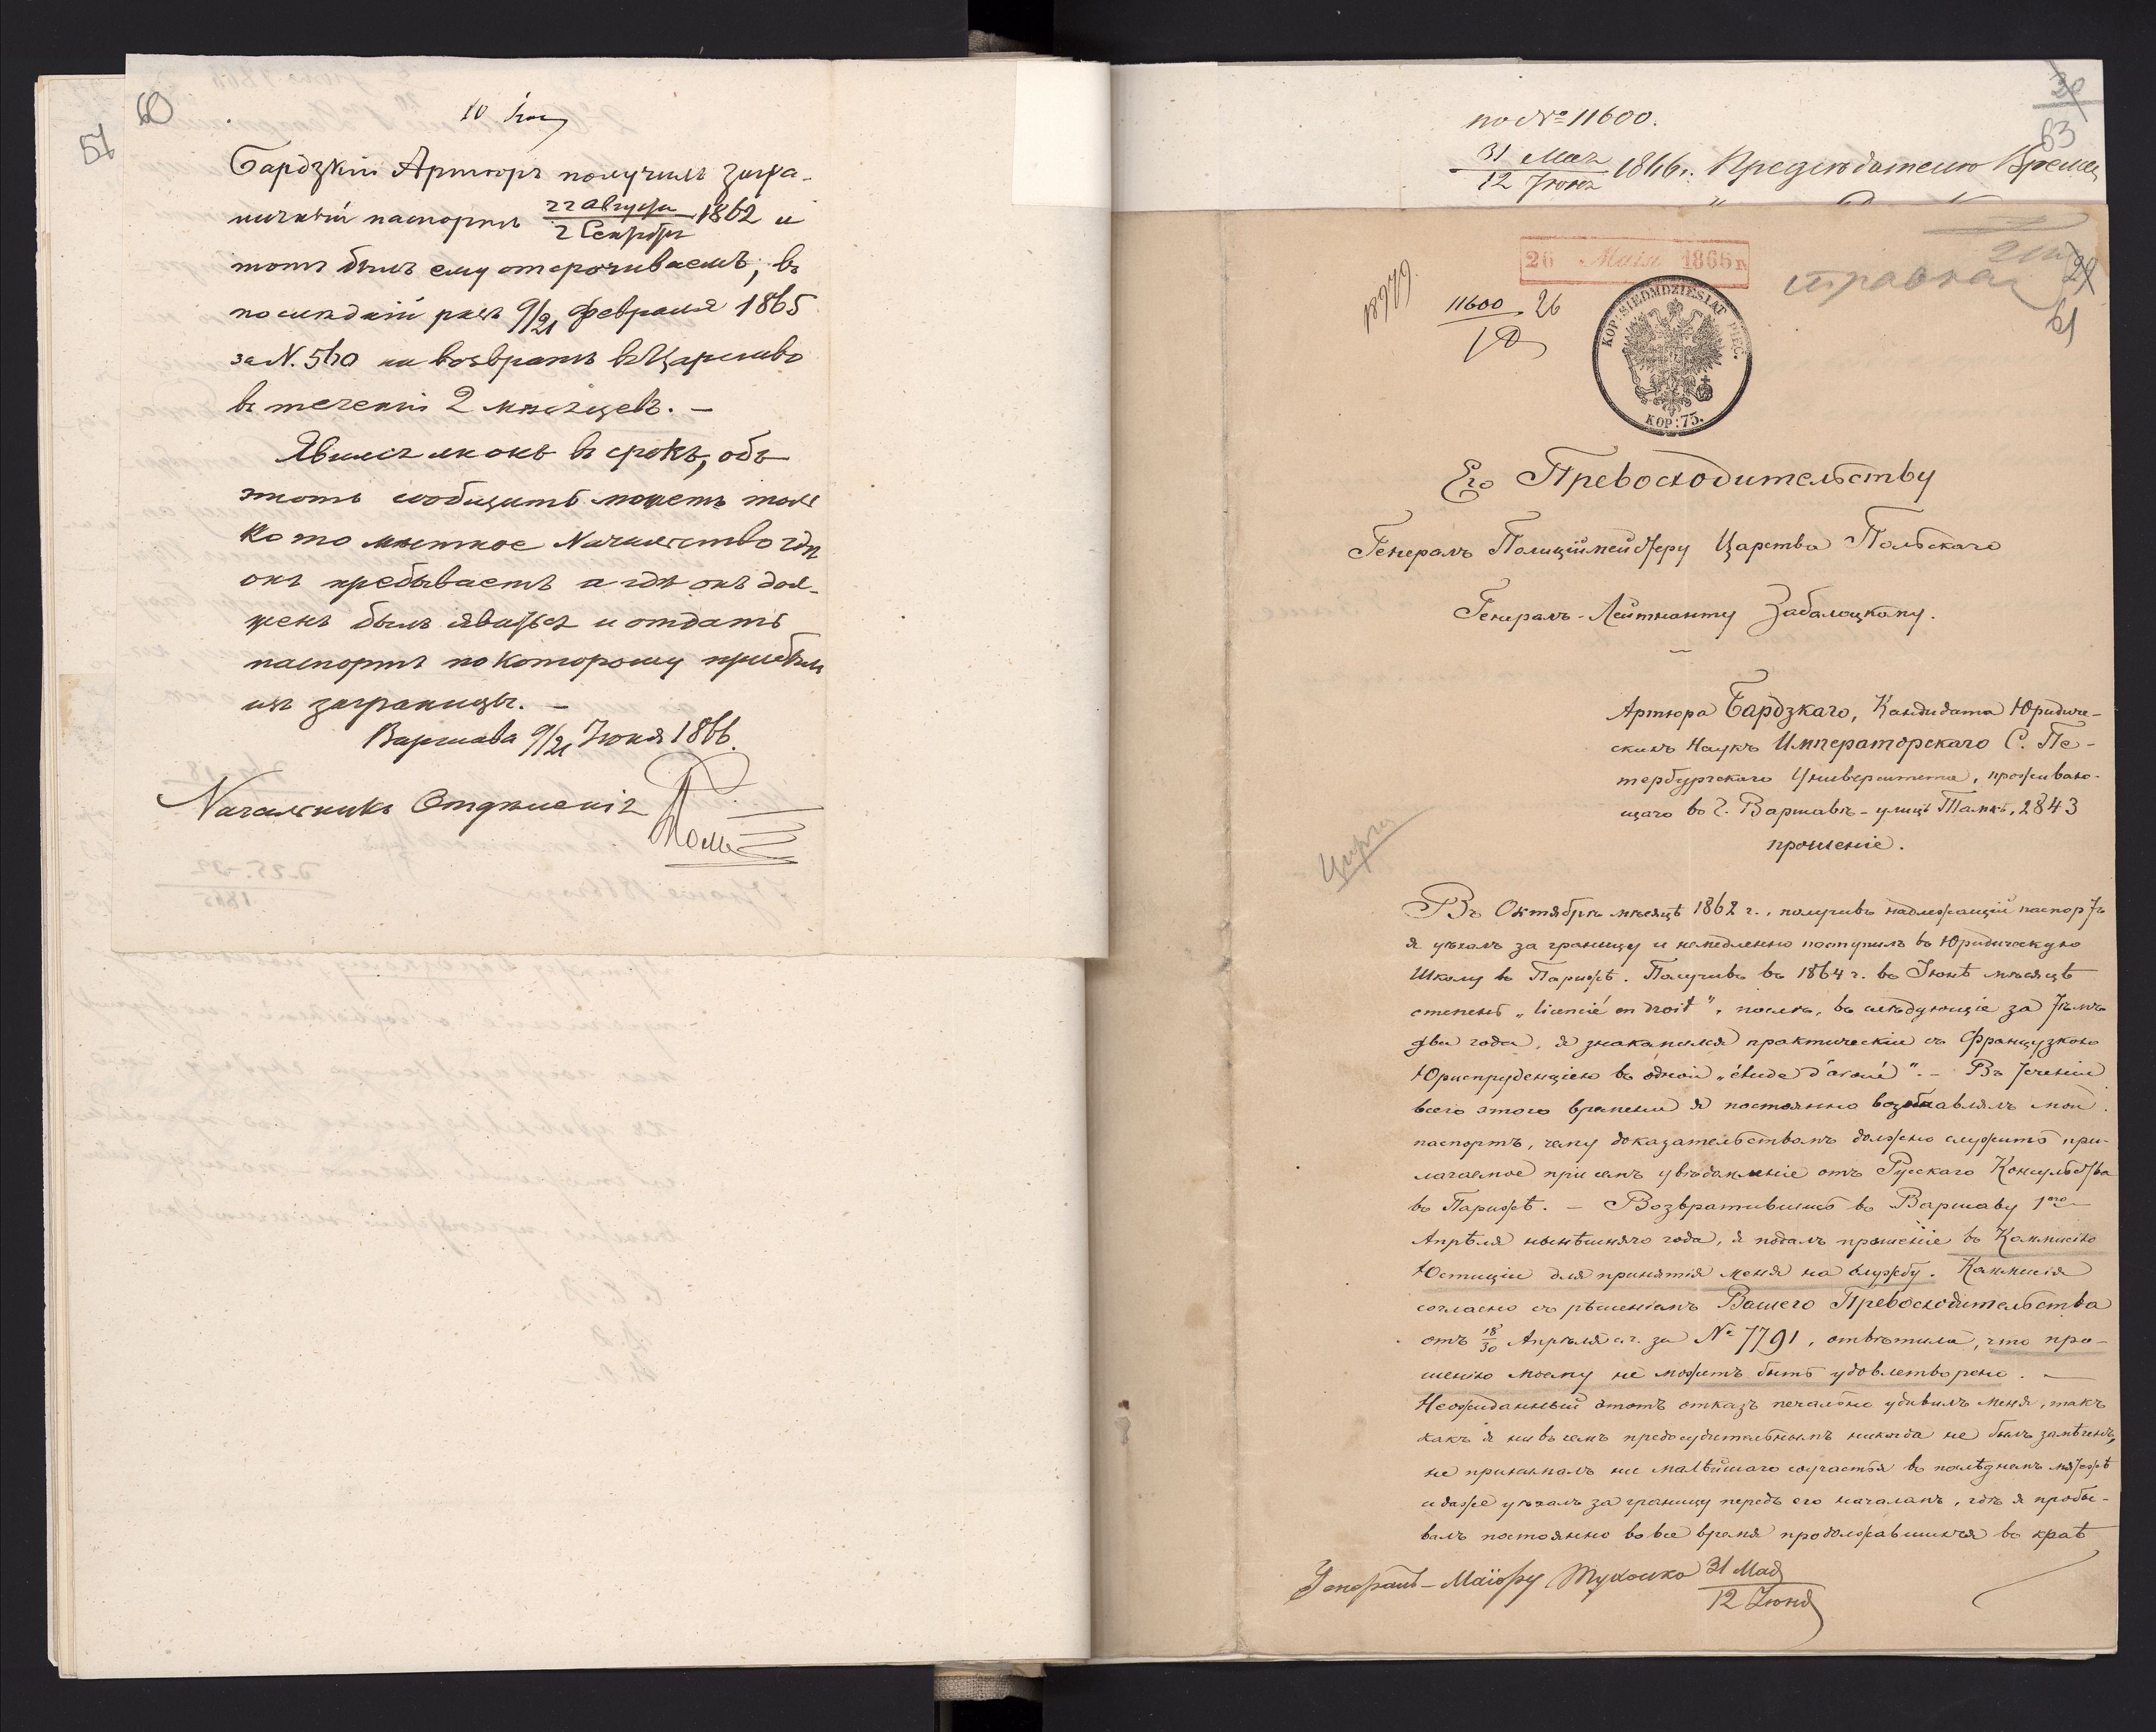 60
57
10
Бардзкій Артюръ получилъ загра-
ничный паспортъ 22 Августа / 2 Сентября 1862 и
тотъ былъ ему отсрочиваемъ, въ
послѣдній разъ 9/21 Февраля 1865
за N. 560 на возвратъ въ Царство
въ теченіи 2 мѣсяцевъ. —
Явился ли онъ въ срокъ, объ
этомъ сообщить можетъ толь
ко то мѣстное Начальство гдѣ
онъ пребываетъ а гдѣ онъ дол-
женъ былъ явиться и отдать
паспортъ по которому прибылъ
изъ заграницы. —
Варшава 9/21 Іюня 1866.
Начальникъ Отдѣленія
по № 11600.
31 Мая / 12 Іюня 1866 г. Предсѣдателю Времен
63
26 Маія 1866 г.
11600 26
справка
61
KOP: SIEDMDZIESIĄT PIĘĆ.
KOP: 75.
Его Превосходительству
Генералъ Полиціймейстеру Царства Польскаго
Генералъ-Лейтнанту Заболоцкому.
Артюра Бардзкаго, Кандидата Юридиче-
скихъ Наукъ Императорскаго С. Пе-
тербургскаго Университета, проживаю-
щаго въ г. Варшавѣ - улицѣ Тамкѣ, 2843
прошеніе.
Въ Октябрѣ мѣсяцѣ 1862 г., получивъ надлежащій паспортъ
я уѣхалъ за границу и немедленно поступилъ въ Юридическую
Школу въ Парижѣ. Получивъ въ 1864 г. въ Іюнѣ мѣсяцѣ
степень „licencié en droit", послѣ, въ слѣдующіе за тѣмъ
два года, я знакомился практически съ Французкою
Юриспруденціею въ одной „étude d'avoué". — Въ теченіи
всего этого времени я постоянно возобнавлялъ мой
паспортъ, чему доказательствомъ должно служить при-
лагаемое при семъ увѣдомленіе отъ Русскаго Консульства
въ Парижѣ. — Возвратившись въ Варшаву 1го
Апрѣля нынѣшняго года, я подалъ прошеніе въ Коммисію
Юстиціи для принятія меня на службу. Коммисія
согласно съ рѣшеніемъ Вашего Превосходительства
отъ 18/30 Апрѣля с.г. за № 7791, отвѣтила, что про-
шенію моему не можетъ быть удовлетворено. —
Неожиданный этотъ отказъ печально удивилъ меня, такъ
какъ я ни въ чемъ предосудительнымъ никогда не былъ замѣченъ,
не принималъ ни малѣйшаго соучастья въ послѣднемъ мятежѣ
и даже уѣхалъ за границу передъ его началомъ, гдѣ я пробы-
валъ постоянно во все время продолжавшихся въ краѣ
Генералъ-Маіору Тухолко 31 Мая / 12 Іюня